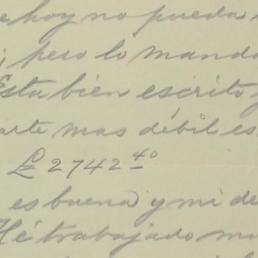 e hoy no pueda
, pero lo mando
Esta bién escrito,
arte mas débil es
£ 2742⁴⁰
es buena y mi de
Hé trabajado mu